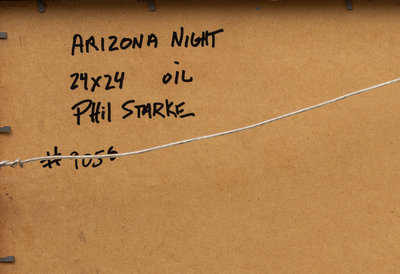 ARIZONA NIGHT
24x24 OIL
PHil STARKE